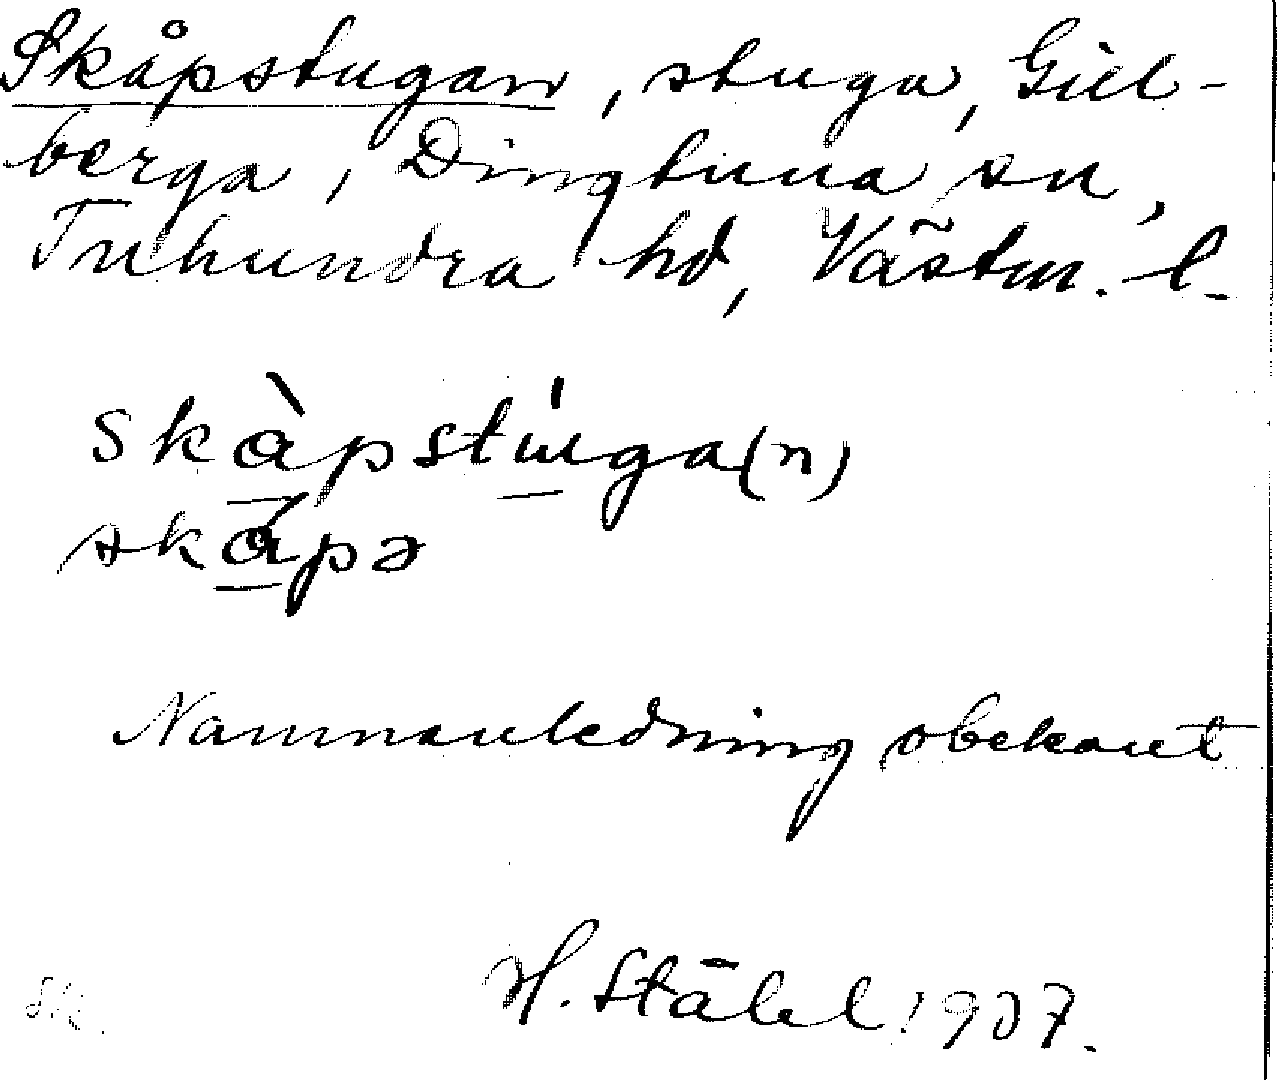 Skåpstugan, stuga, Gill-
berga, Dingtuna sn,
Tuhundra hd, Västm. l.
skàpstúga(n)
skápə
Namnanledning obekant
H. Ståhl 1907.
Sk.